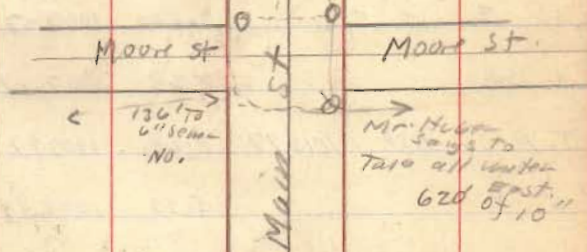 Moore St
Main St
Moore St.
136' To
6" Sewer
No.
Mr.
Says to
Take all water
620' East.
of 10"